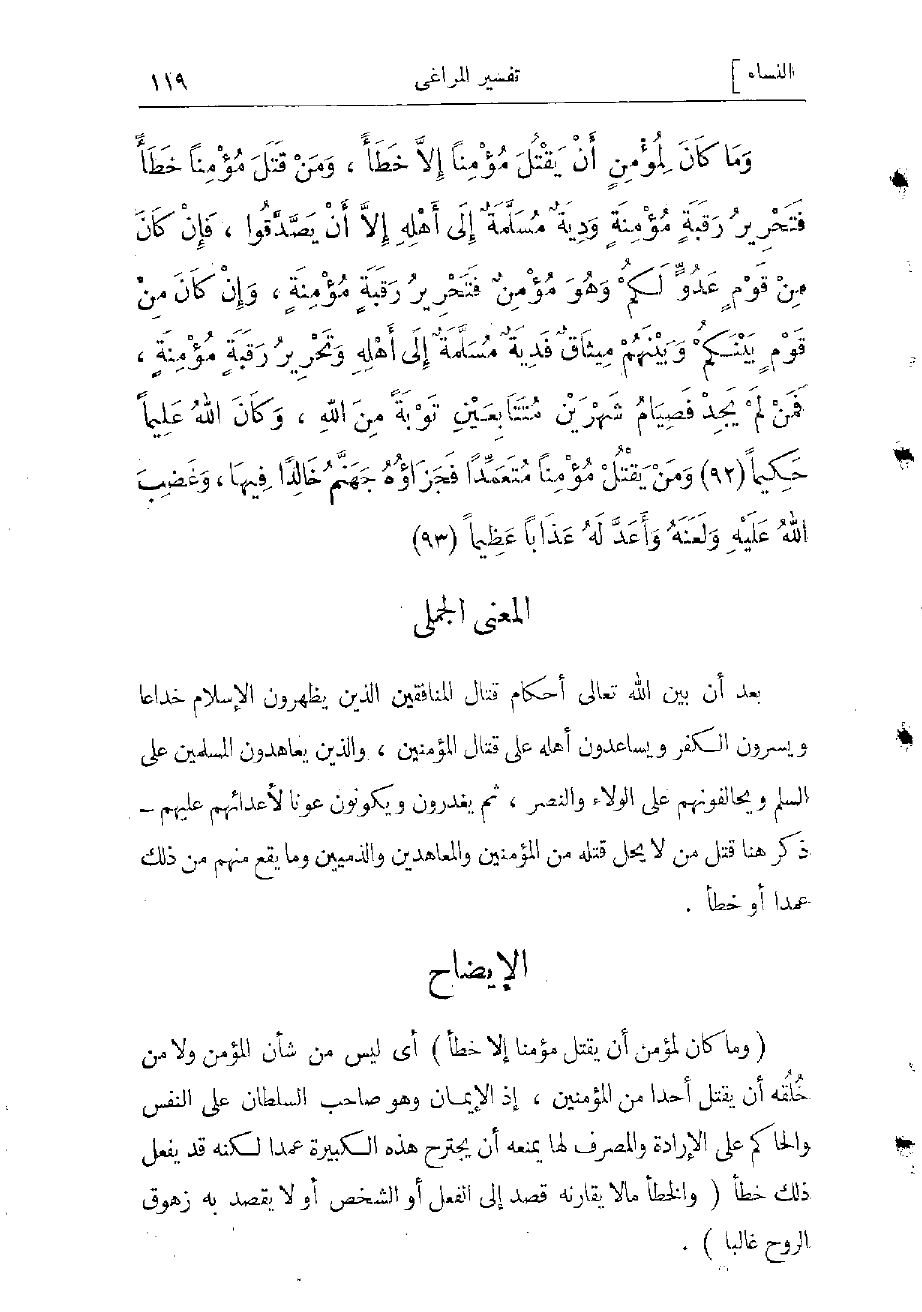 النساء ]
تفسير المراغى
١١٩
وَمَا كَانَ لِمُؤْمِنٍ أَنْ يَقْتُلَ مُؤْمِناً إِلاَّ خَطَأً ، وَمَنْ قَتَلَ مُؤْمِناً خَطَأً
فَتَحْرِيرُ رَقَبَةٍ مُؤْمِنَةٍ وَدِيَةٌ مُسَلَّمَةٌ إِلَى أَهْلِهِ إِلاَّ أَنْ يَصَّدَّقُوا ، فَإِنْ كَانَ
مِنْ قَوْمٍ عَدُوٍّ لَكُمْ وَهُوَ مُؤْمِنٌ فَتَحْرِيرُ رَقَبَةٍ مُؤْمِنَةٍ ، وَإِنْ كَانَ مِنْ
قَوْمٍ بَيْنَكُمْ وَبَيْنَهُمْ مِيثَاقٌ فَدِيَةٌ مُسَلَّمَةٌ إِلَى أَهْلِهِ وَتَحْرِيرُ رَقَبَةٍ مُؤْمِنَةٍ ،
فَمَنْ لَمْ يَجِدْ فَصِيَامُ شَهْرَيْنِ مُتَتَابِعَيْنِ تَوْبَةً مِنَ اللهِ ، وَكَانَ اللهُ عَلِيماً
حَكِيماً (٩٢) وَمَنْ يَقْتُلْ مُؤْمِناً مُتَعَمِّدًا فَجَزَاؤُهُ جَهَنَّمُ خَالِدًا فِيهَا ، وَغَضِبَ
اللهُ عَلَيْهِ وَلَعَنَهُ وَأَعَدَّ لَهُ عَذَاباً عَظِيماً (٩٣)
المعنى الجملى
بعد أن بين الله تعالى أحكام قتال المنافقين الذين يظهرون الإسلام خداعا
ويسرون الكفر ويساعدون أهله على قتال المؤمنين ، والذين يعاهدون المسلمين على
السلم ويحالفونهم على الولاء والنصر ، ثم يغدرون ويكونون عونا لأعدائهم عليهم –
ذكر هنا قتل من لا يحل قتله من المؤمنين والمعاهدين والذميين وما يقع منهم من ذلك
عمدا أو خطأ .
الإيضاح
( وما كان لمؤمن أن يقتل مؤمنا إلا خطأ ) أى ليس من شأن المؤمن ولا من
خُلُقه أن يقتل أحدا من المؤمنين ، إذ الإيمان وهو صاحب السلطان على النفس
والحاكم على الإرادة والمصرف لها يمنعه أن يجترح هذه الكبيرة عمدا لكنه قد يفعل
ذلك خطأ ( والخطأ مالا يقارنه قصد إلى الفعل أو الشخص أو لا يقصد به زهوق
الروح غالبا ) .